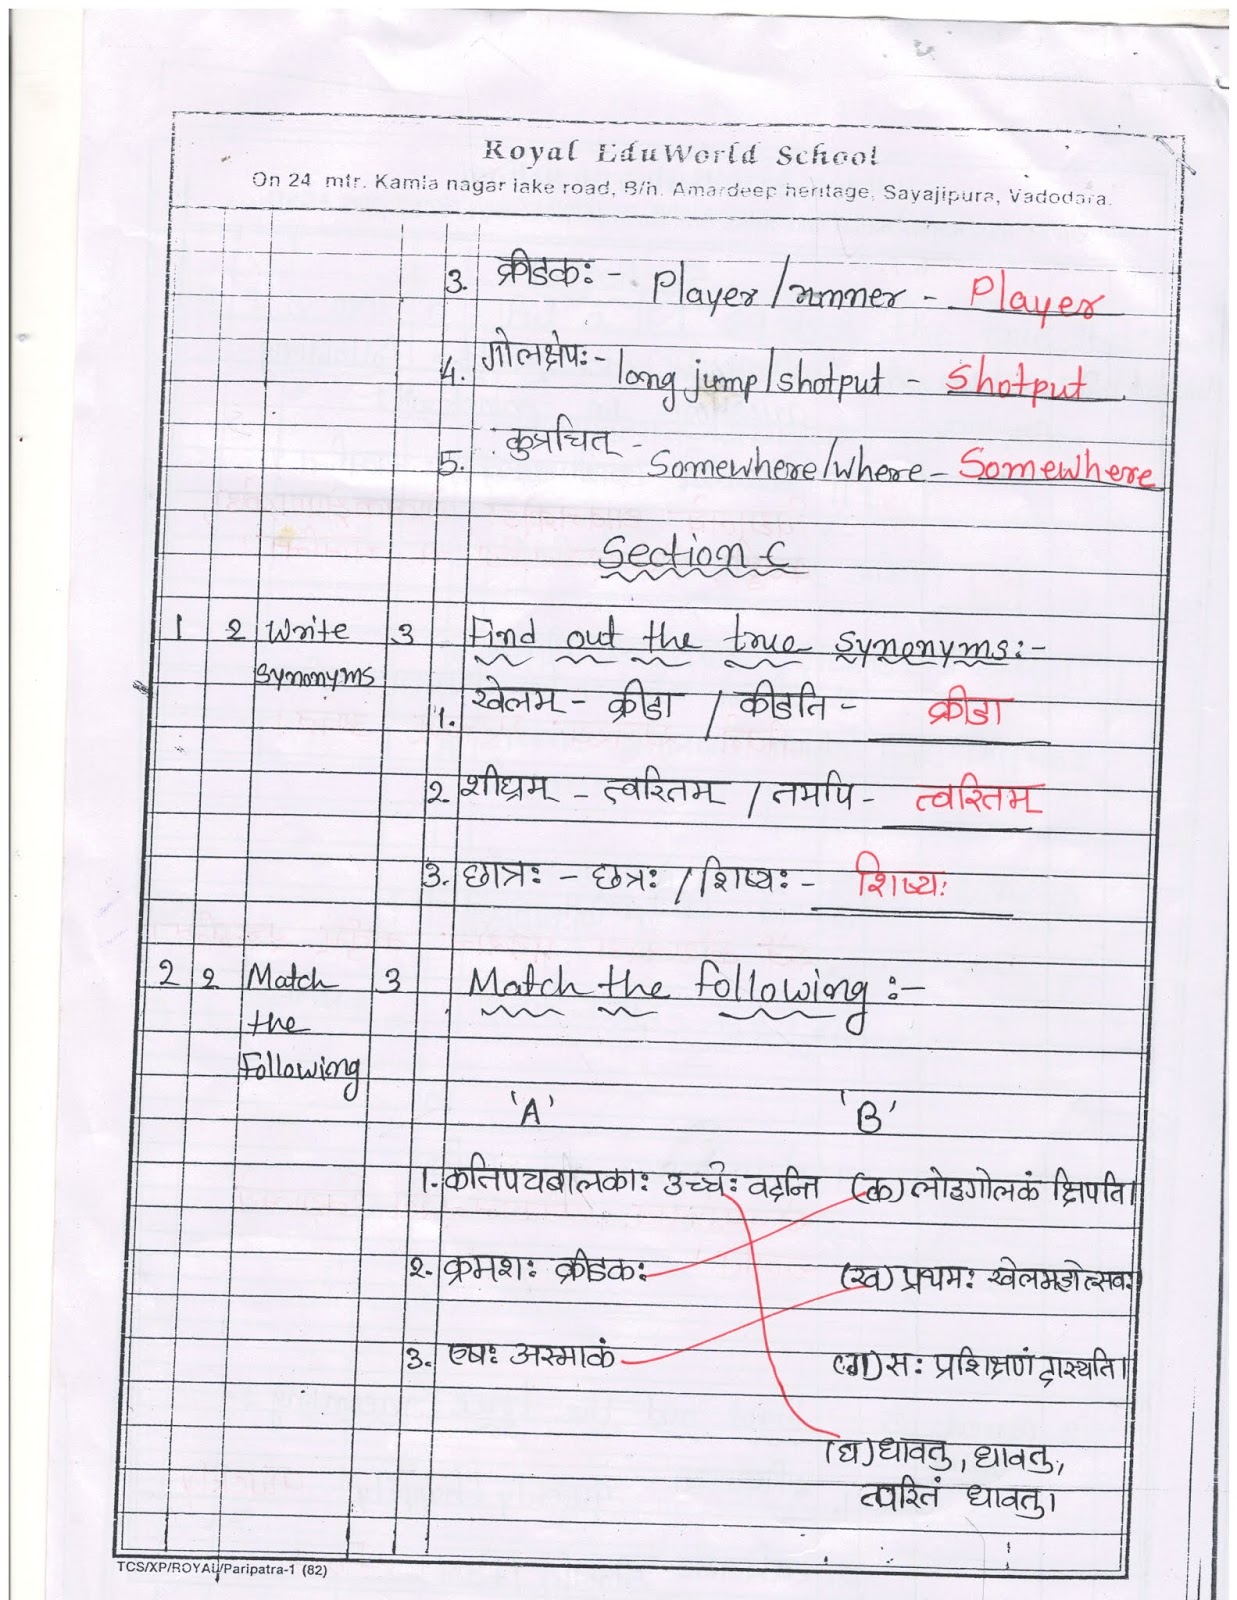 Royal EduWorld School
On 24 mtr. Kamla nagar lake road, B/h. Amardeep heritage, Sayajipura, Vadodara.
3. क्रीडकः - Player/runner - Player
4. गोलक्षेपः - long jump/shotput - Shotput
5. कुत्रचित् - Somewhere/where - Somewhere
Section C
1 2 Write 3 Find out the true synonyms:-
synonyms
1. खेलम् - क्रीडा / कीडति - क्रीडा
2. शीघ्रम् - त्वरितम् / तमपि - त्वरितम्
3. छात्रः - छत्रः / शिष्यः - शिष्यः
2 2 Match 3 Match the following :-
the
Following
'A' 'B'
1. कतिपयबालकाः उच्चैः वदन्ति (क) लोहगोलकं क्षिपति।
2. क्रमशः क्रीडकः (ख) प्रथमः खेलमहोत्सवः
3. एषः अस्माकं (ग) सः प्रशिक्षणं दास्यति।
(घ) धावतु, धावतु,
त्वरितं धावतु।
TCS/XP/ROYAL/Paripatra-1 (82)